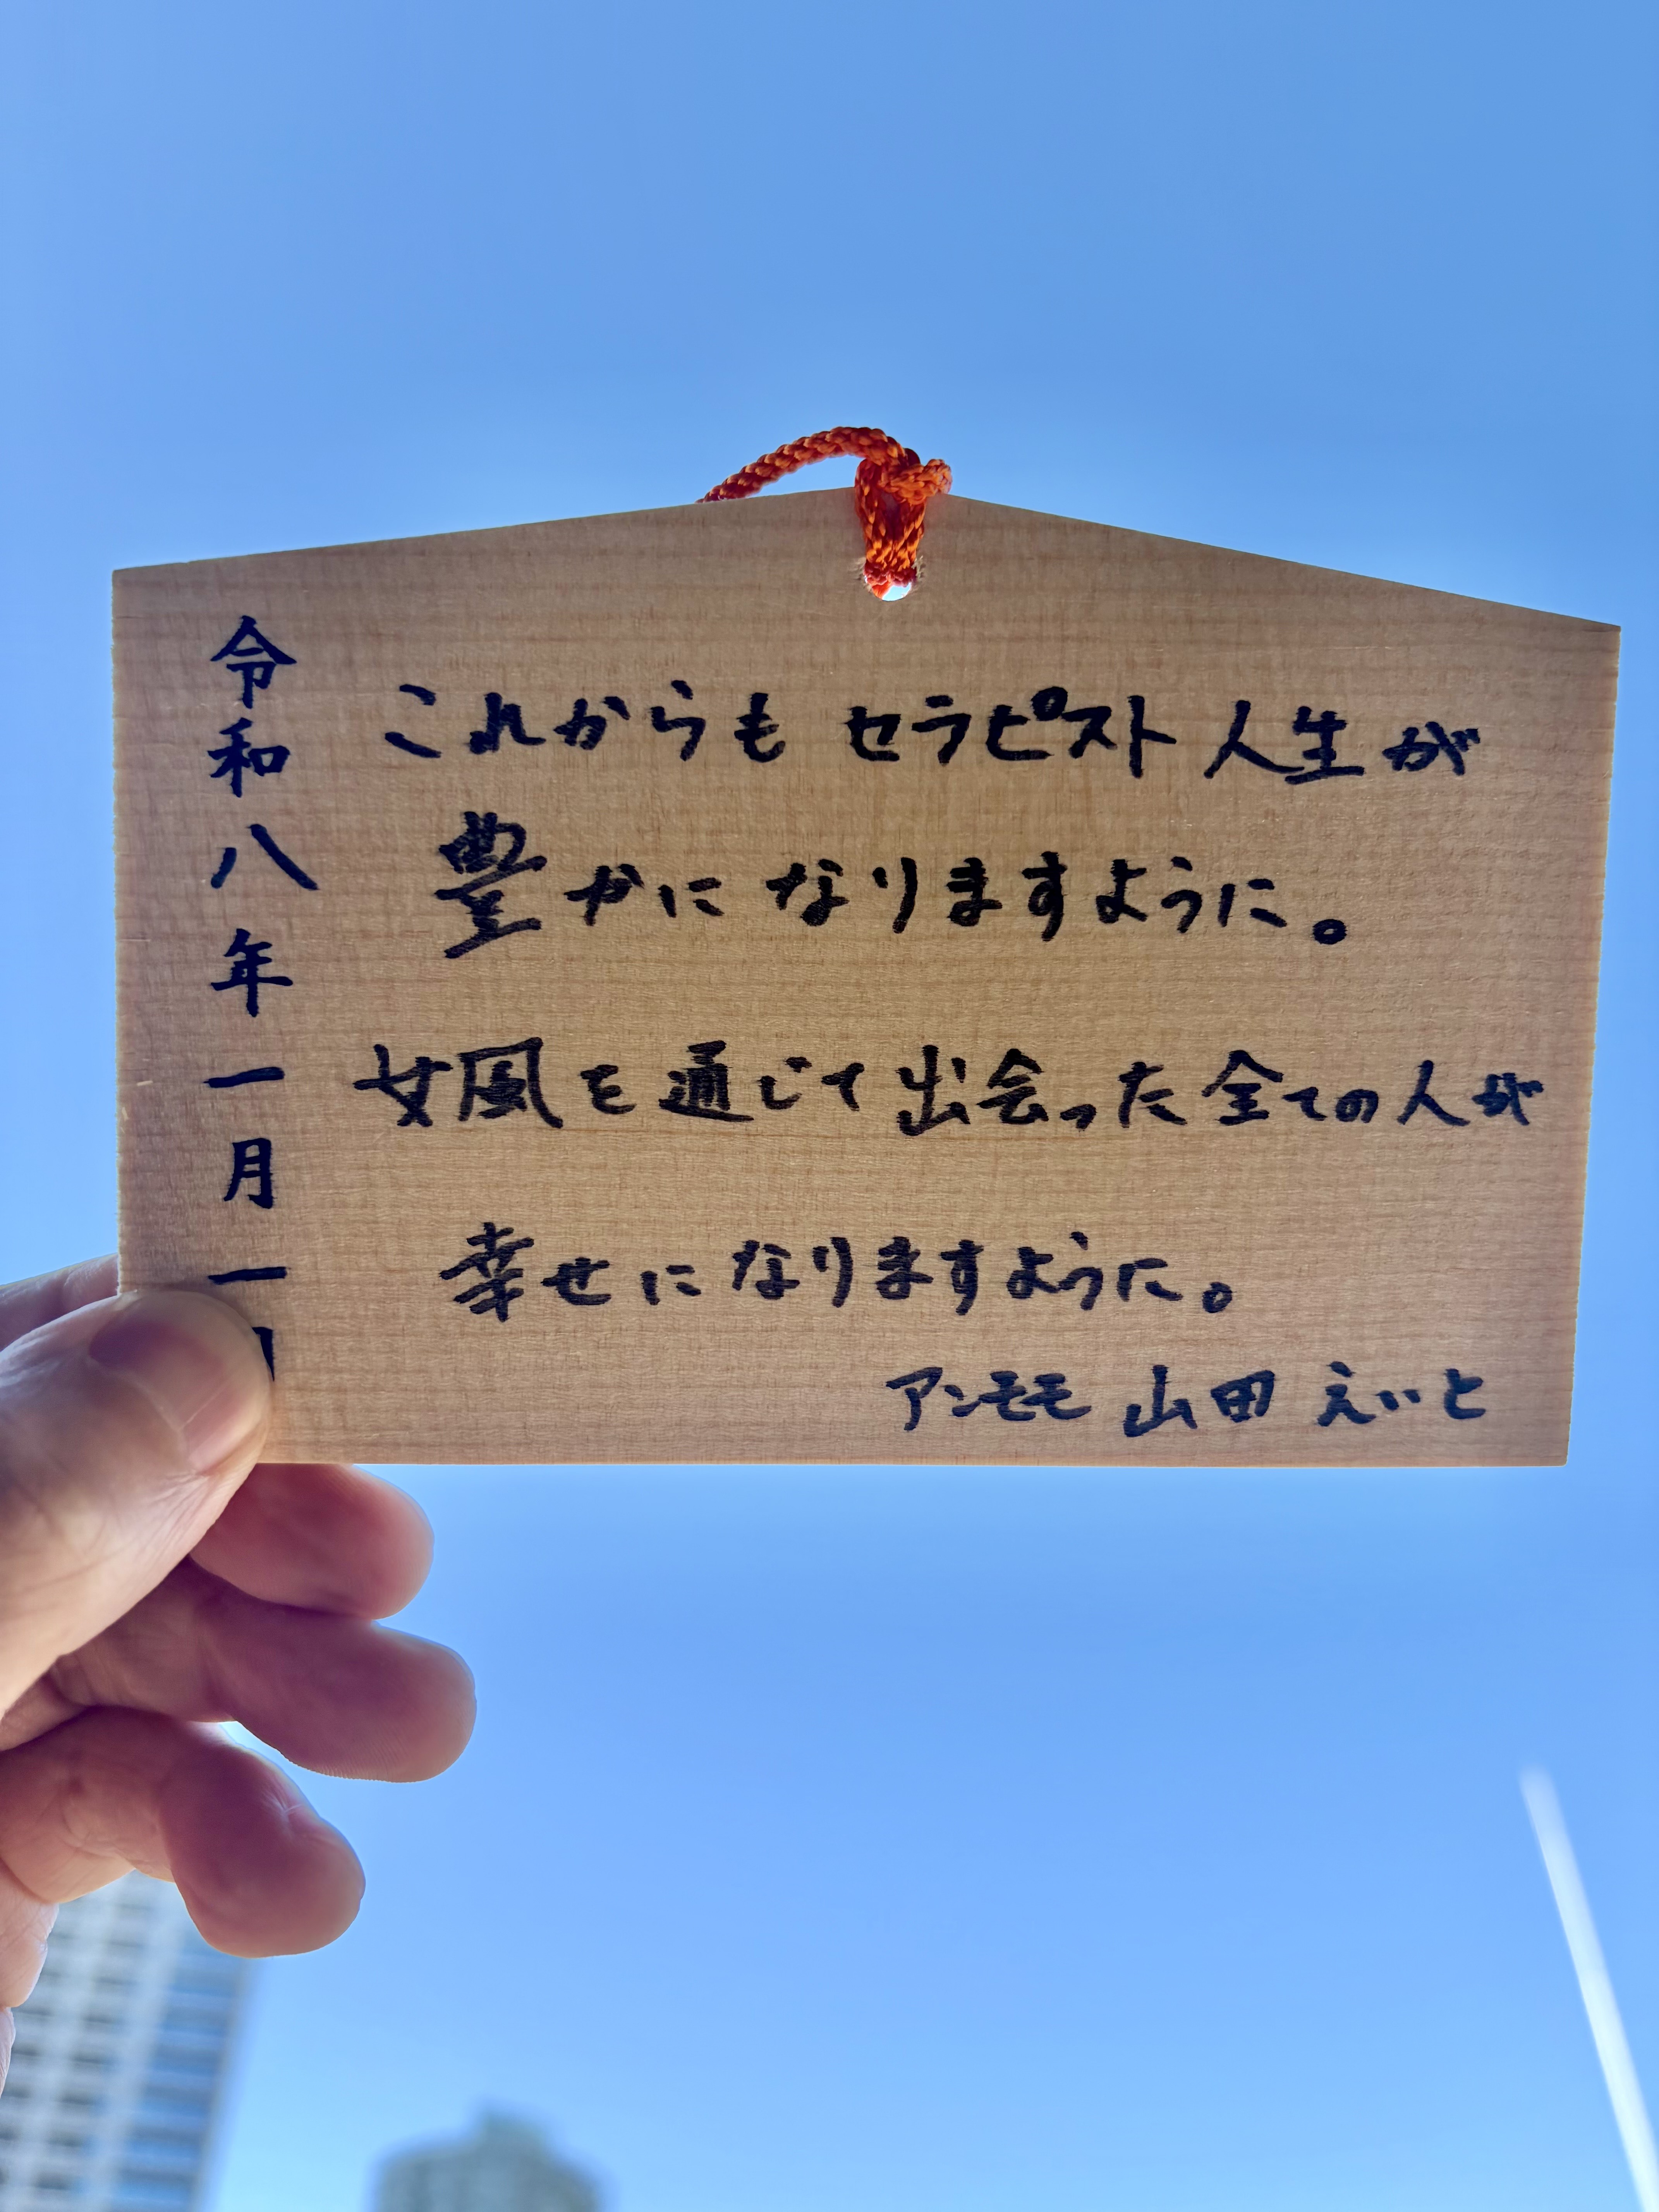 これからもセラピスト人生が
豊かになりますように。
女風を通じて出会った全ての人が
幸せになりますように。
アンモモ 山田 えいと
令和八年一月一日